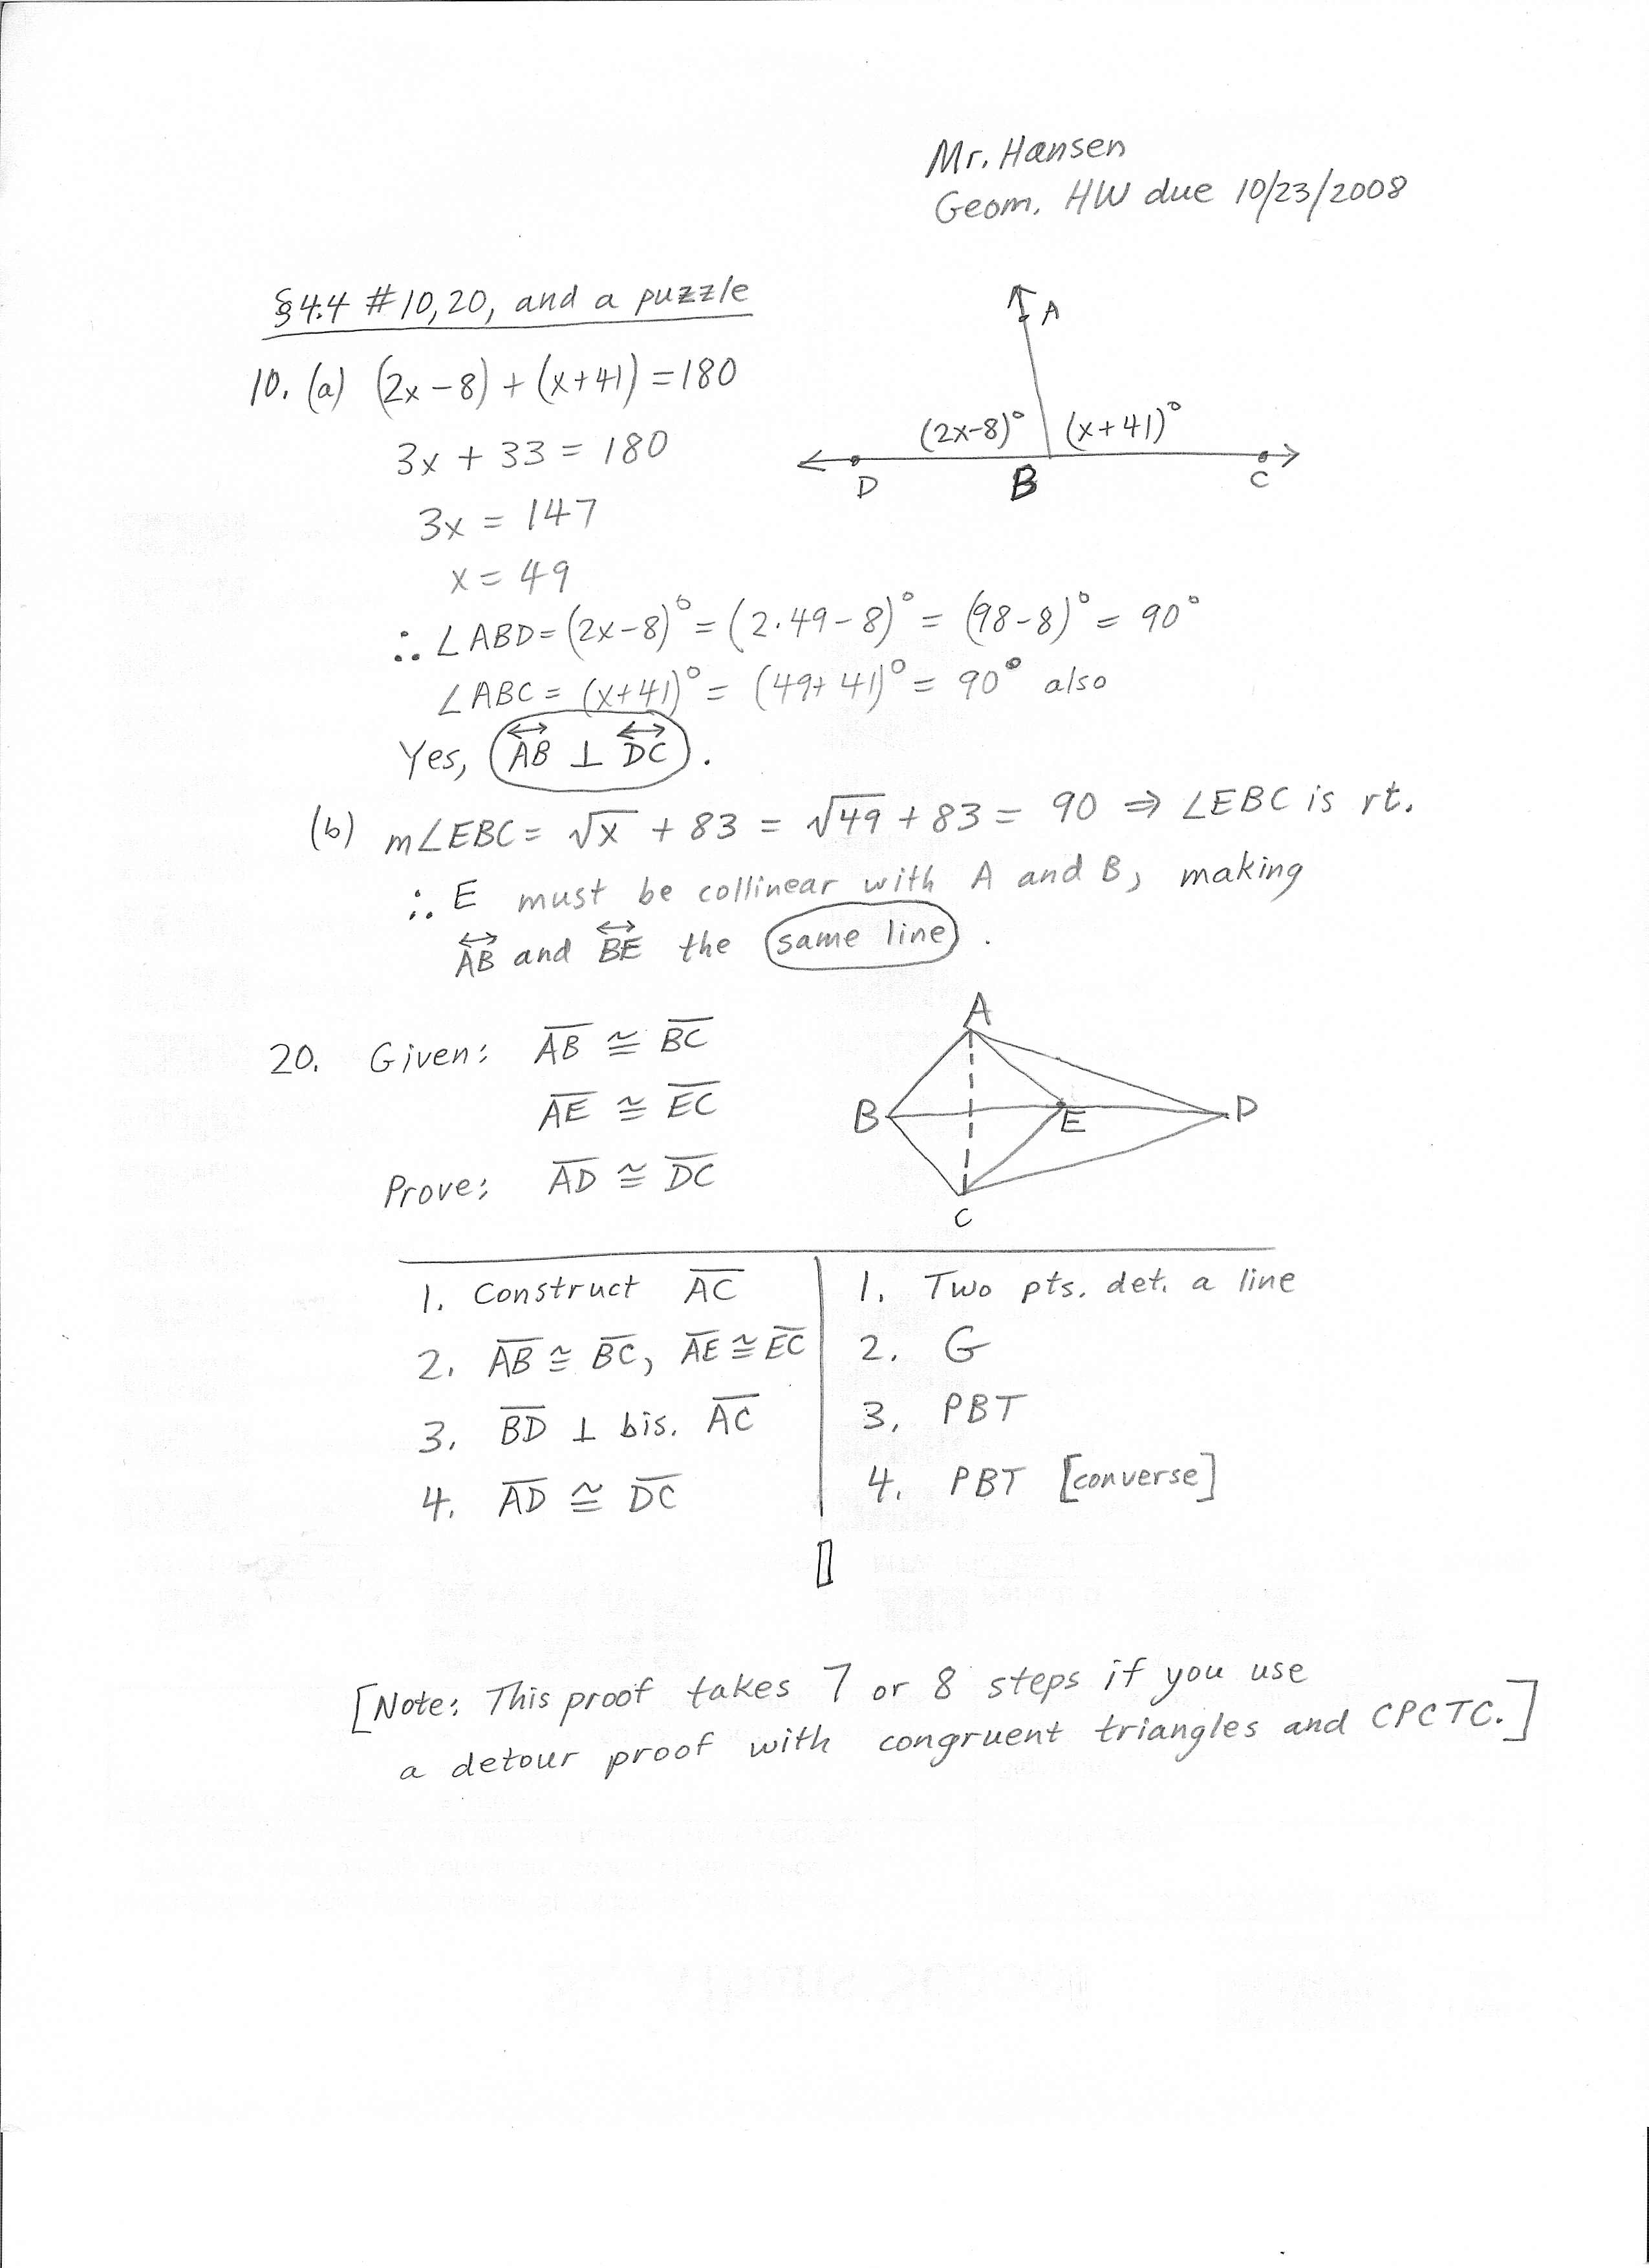 Mr. Hansen
Geom. HW due 10/23/2008
§4.4 #10,20, and a puzzle
10. (a) (2x-8) + (x+41) = 180
3x + 33 = 180
3x = 147
x = 49
A
(2x-8)° (x+41)°
D B C
∴ ∠ABD = (2x-8)° = (2·49-8)° = (98-8)° = 90°
∠ABC = (x+41)° = (49+41)° = 90° also
Yes, AB ⊥ DC.
(b) m∠EBC = √x + 83 = √49 + 83 = 90 ⇒ ∠EBC is rt.
∴ E must be collinear with A and B, making
AB and BE the same line.
20. Given: AB ≅ BC
AE ≅ EC
Prove: AD ≅ DC
A
B E D
C
1. Construct AC 1. Two pts. det. a line
2. AB ≅ BC, AE ≅ EC 2. G
3. BD ⊥ bis. AC 3. PBT
4. AD ≅ DC 4. PBT [converse]
[Note: This proof takes 7 or 8 steps if you use
a detour proof with congruent triangles and CPCTC.]